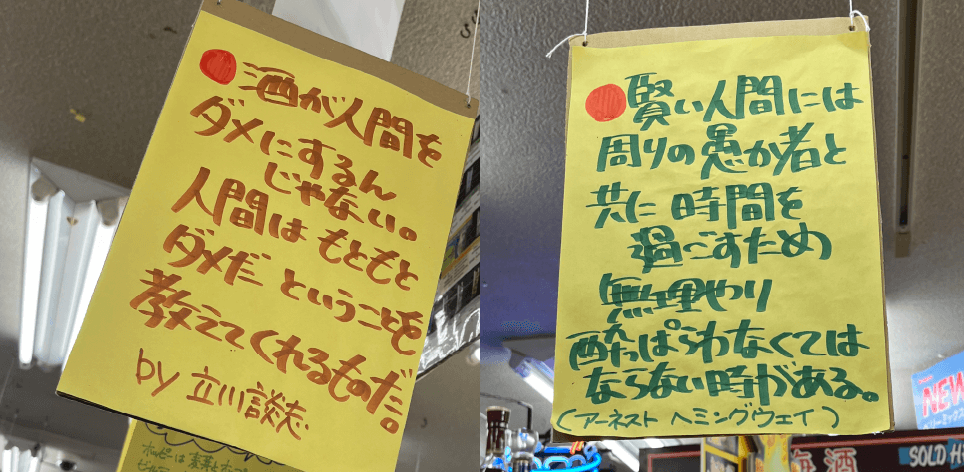 酒が人間を
ダメにするん
じゃない。
人間はもともと
ダメだ ということを
教えてくれるものだ。
by 立川談志
ホッピーは
賢い人間には
周りの愚か者と
共に 時間を
過ごすため
無理やり
酔っぱらわなくては
ならない時がある。
(アーネスト ヘミングウェイ)
NEW
梅酒
SOLD